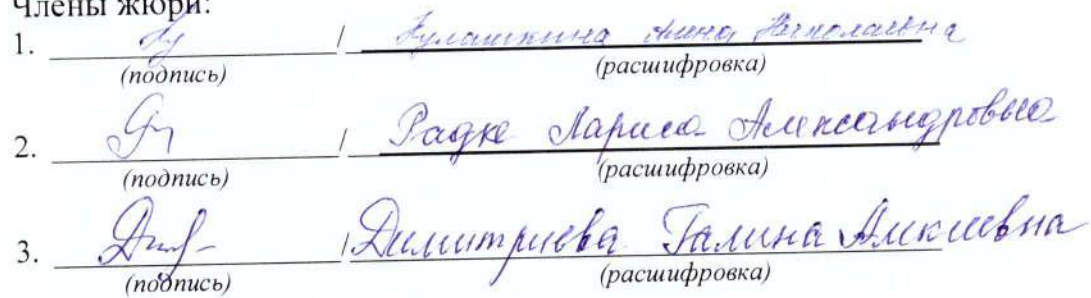 Члены жюри:
1. / Кулашкина Анна Николаевна
(подпись) (расшифровка)
2. / Радке Лариса Александровна
(подпись) (расшифровка)
3. / Димитриева Галина
(подпись) (расшифровка)